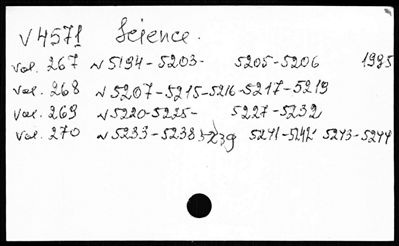 V 4571 Science.
vol. 267 N 5194-5203- 5205-5206 1995
vol. 268 N 5207-5215-5216-5217-5219
vol. 269 N 5220-5225- 5227-5232
vol. 270 N 5233-5238-5239 5241-5242 5243-5244